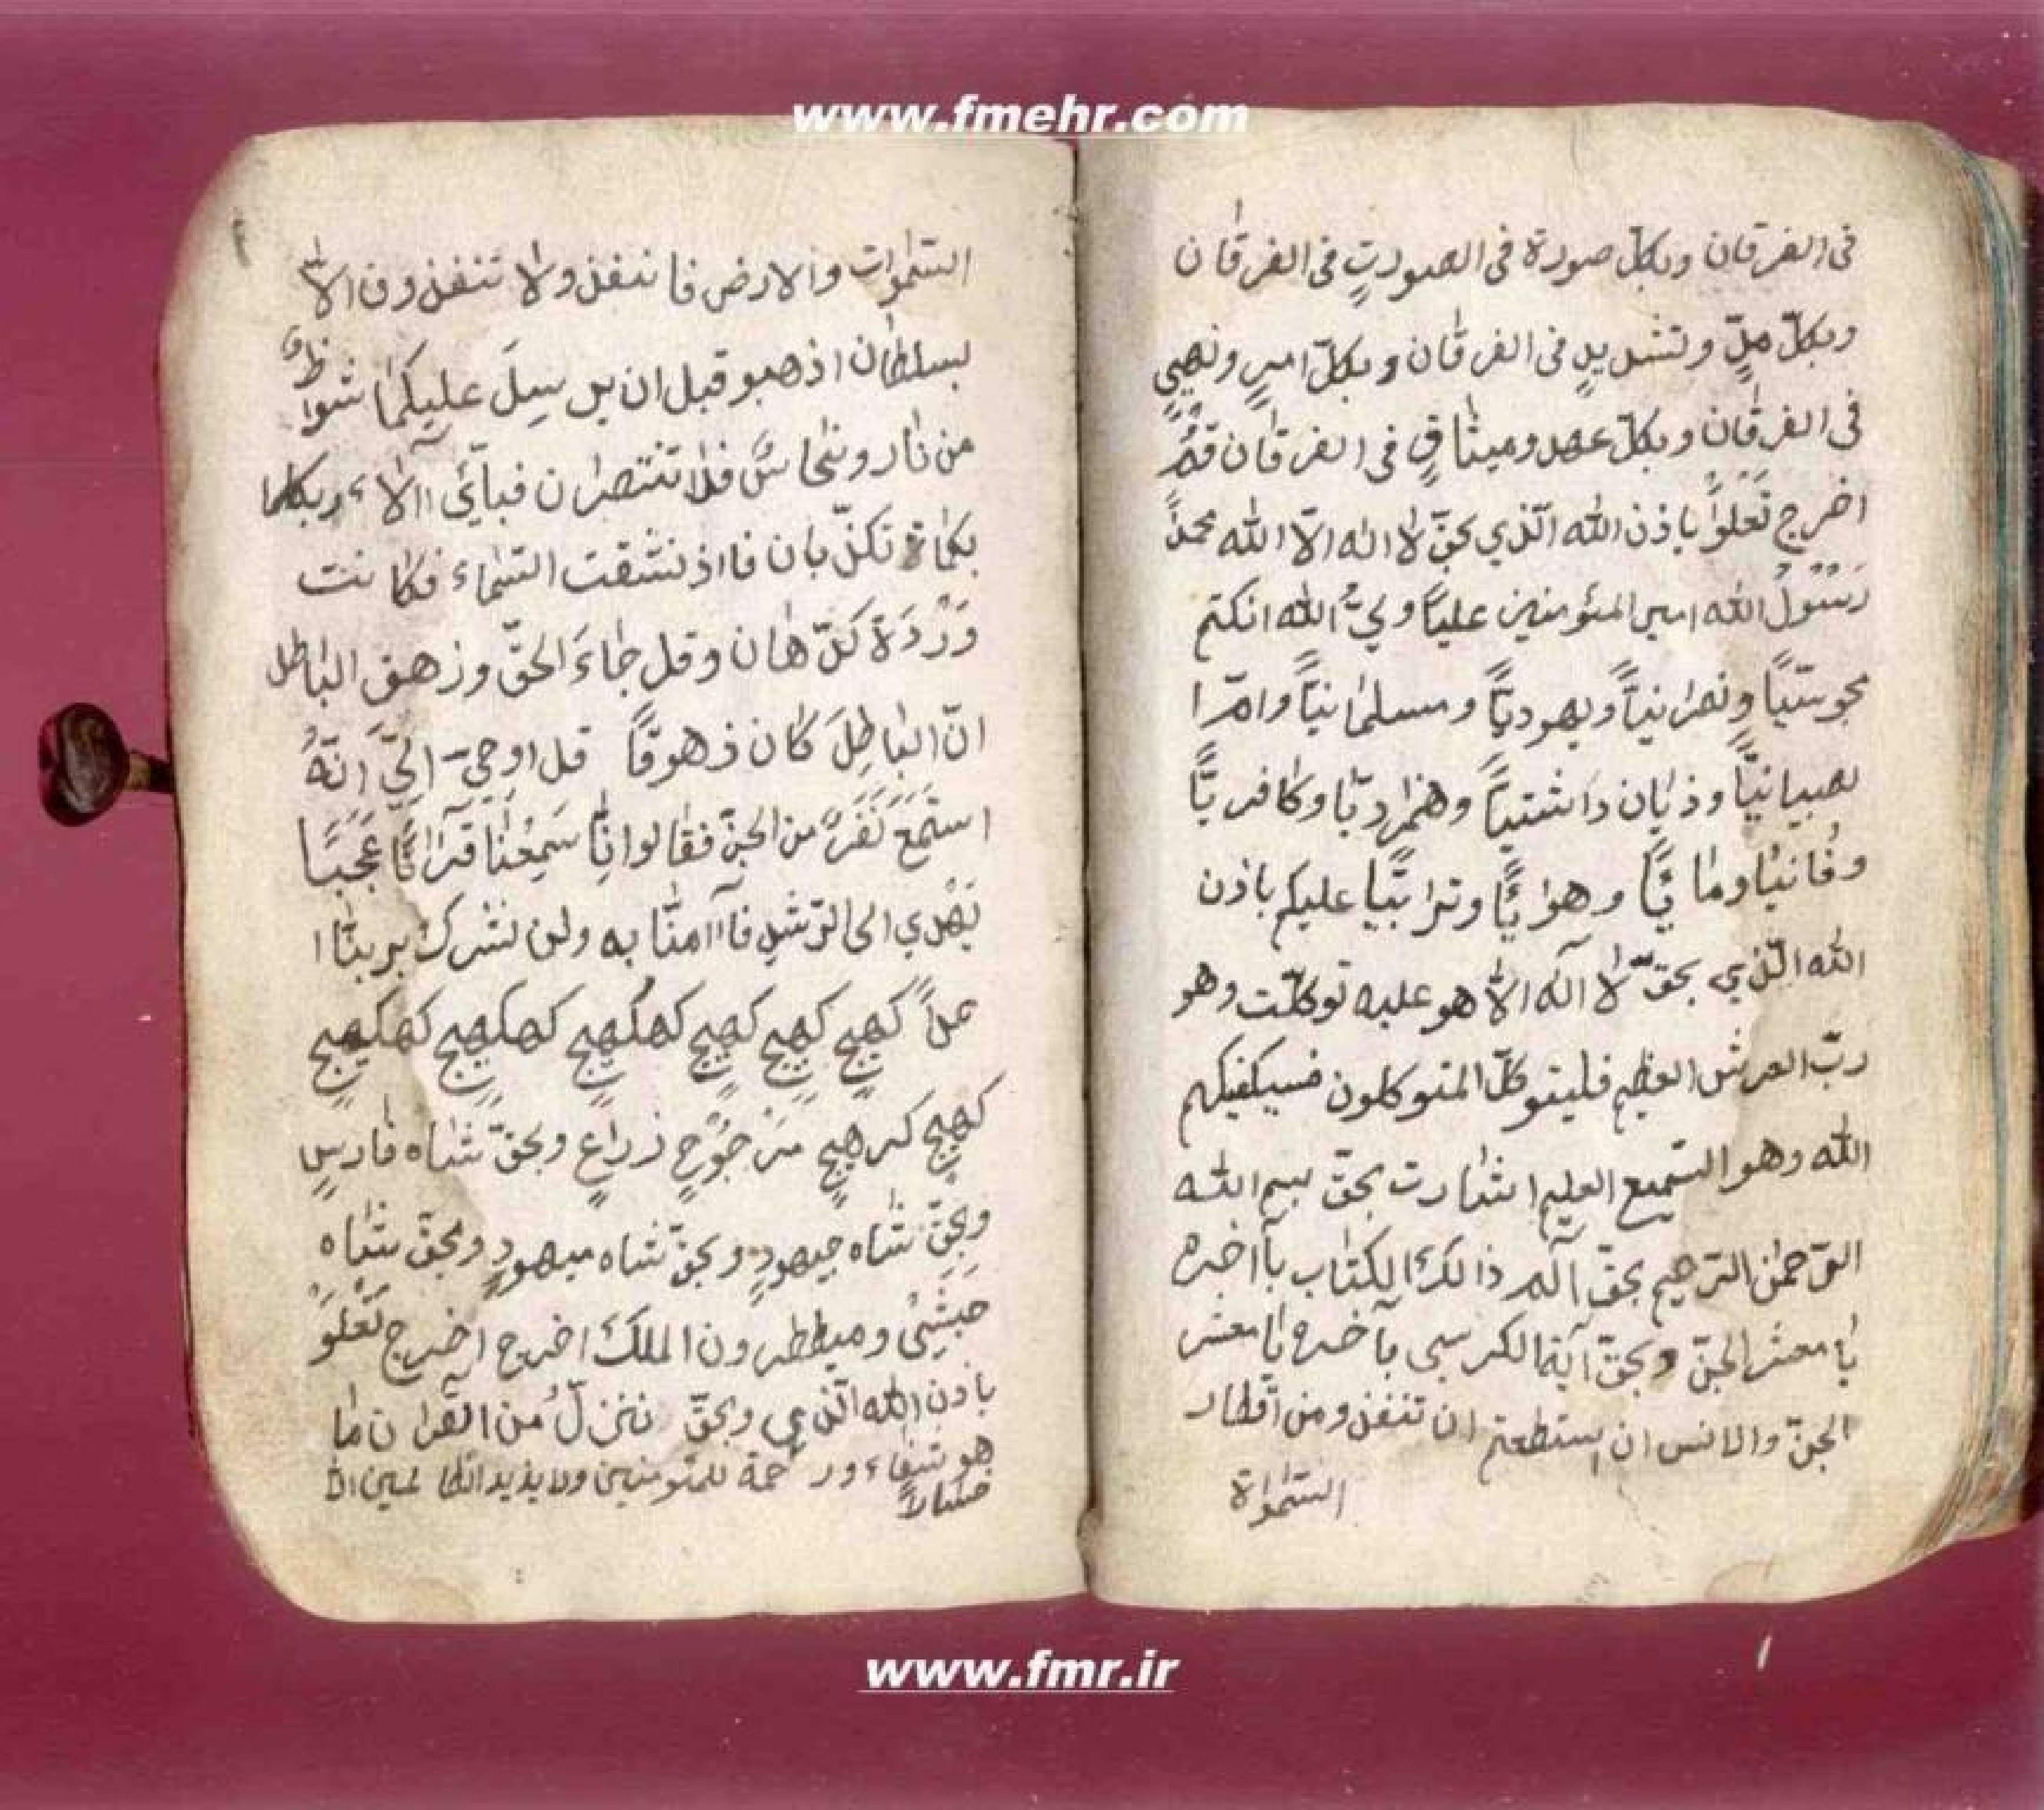 www.fmehr.com
فی الفرقان وبکلّ صورة فی الصورتٍ فی الفرقان
وبکلّ مدٍّ وتشدیدٍ فی الفرقان وبکلّ امرٍ ونهیٍ
فی الفرقان وبکلّ عهد ومیثاقٍ فی الفرقان قمُ
اخرج تَعَلوَُّا باذن الله الّذی بحقّ لا اله الاّ الله محمدًا
رَسُوْلُ الله امیر المئومنین علیًّا ولیُّ الله انکتم
مجوسّیًا ونصرانیًّا ویهودیًّا ومسلمانیًّا وامّرا
صبیانیًّا وذیان داشتیًّا وهمردیّا وکافریًّا
وفانیًا وماییًّا وهواییًّا وترابیًّا علیکم باذن
الله الّذی بحقّ لا آله الاّ هو علیه توکلّت وهو
ربّ العرش العظیم فلیتوکلّ المتوکلون فسیکفیکهم
الله وهو السّمیع العلیم اشارت بحقّ بسم الله
الرّحمن الرّحیم بحقّ آلم ذالک الکتاب بآ اخره
یا معشر الجنّ وبحقّ آیة الکرسی بآخره یا معشر
الجنّ والانس ان استطعتم ان تنفذو من اقطار
السّمٰواة
السّمٰوات والارض فانفذو لا تنفذون الاّ
بسلطان اذهبو قبل ان یرسِلَ علیکما شواظٌ
من نار ونحاسٌ فلا تنتصران فبأیّ آلاء ربکما
تکذّبان فااذنشقت السّماء فکانت
وَرْدَة کلّ هان وقل جاءَ الحقّ وزهق الباطل
انّ الباطِلَ کان ذهوقًا قل اوحیَ الیَّ انّهُ
استمَعَ نَفَرٌ من الجنّ فقالوا انّا سَمِعْنا قرآنًا عَجَبًا
یَهْدی الی الرّشدِ فآ آمنّا به ولن نشرک بربنا ا
حدًا کهیجٍ کهیجٍ کهیجٍ کهکهیجٍ کهکهیجٍ کهکهیجٍ
کهیجٍ کرهیجٍ جُوْحٍ زراعٍ وبحقّ شاه فارسٍ
وبحقّ شاه جیهودٍ وبحقّ شاه میهودٍ وبحقّ شاه
حبشیٰ ومیططرون الملک اخرج اخرج تَعْلوَُ
باذن الله الّذی وبحقّ ننزّلُ من القرآن ما
هو شفاء ورحمة للمئومنین ولا یذید الظالمین الاّ
خسارًا
www.fmr.ir